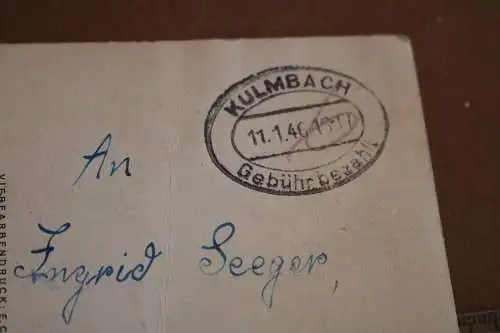 KULMBACH
11.1.46
Gebühr bezahlt
An
Ingrid Seeger,
VIERFARBENDRUCK: E.C